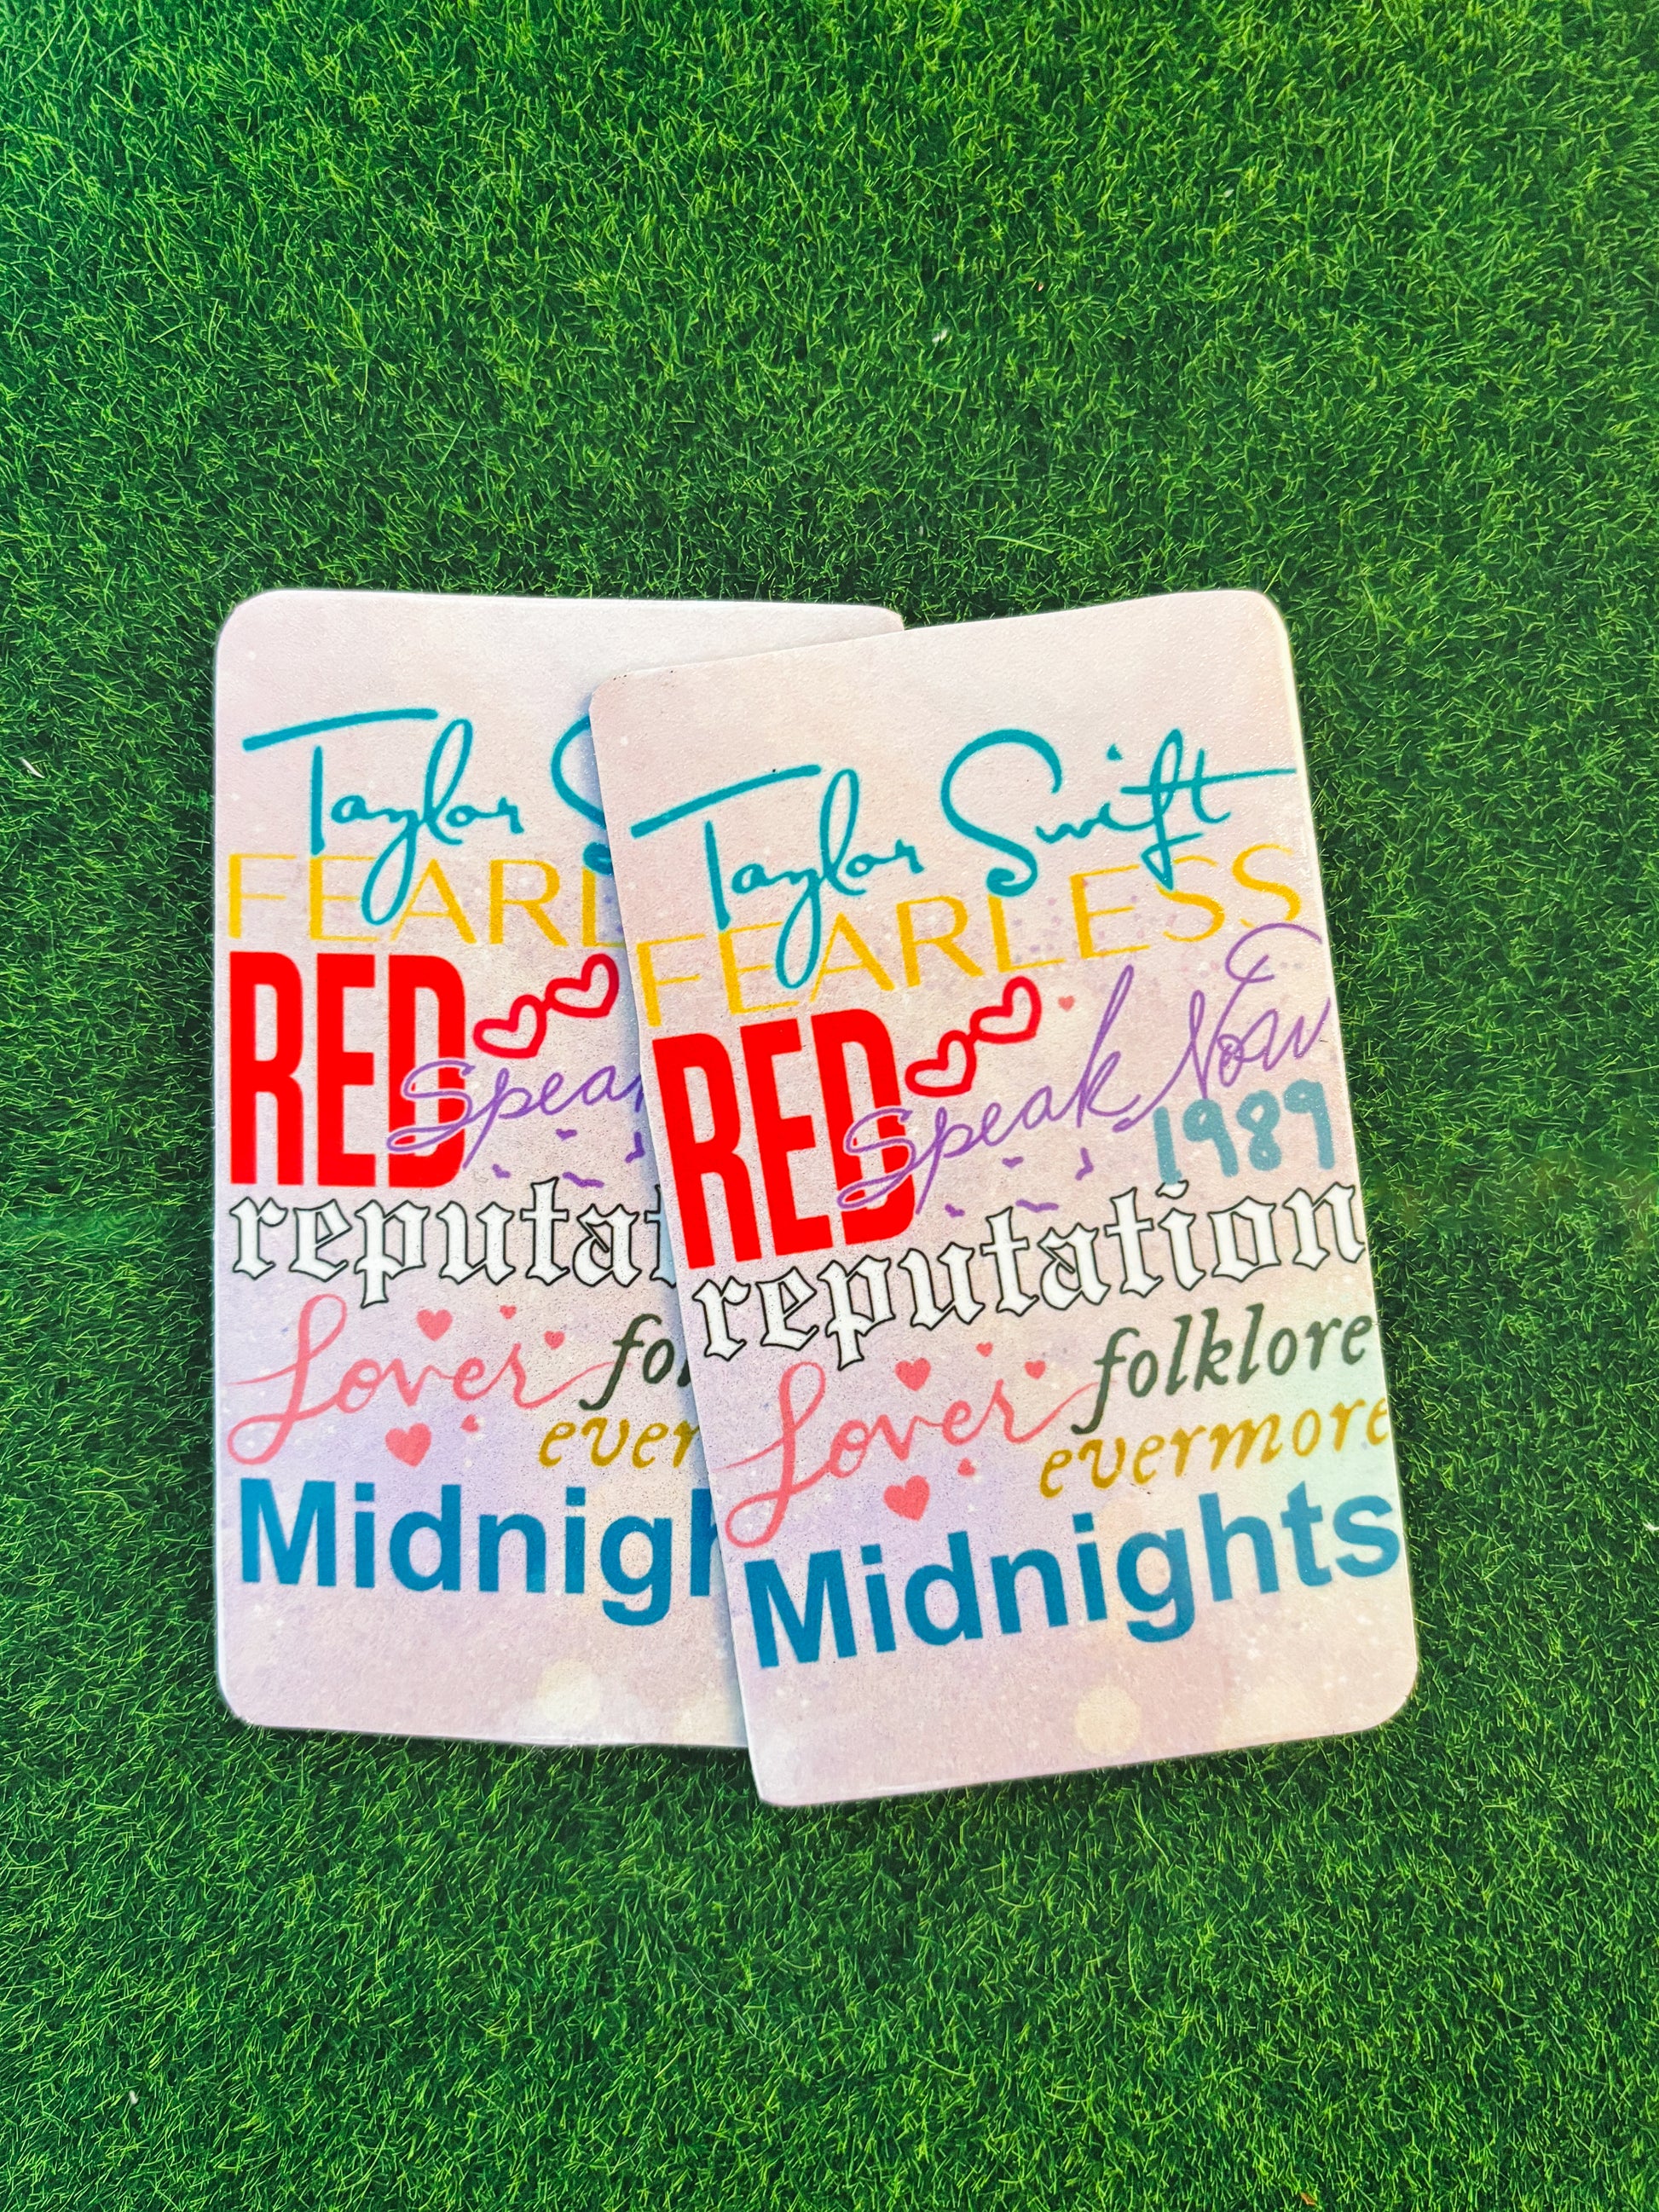 Taylor S
FEARL
RED
Spea
reputat
Lover
fol
ever
Midnigh
Taylor Swift
FEARLESS
RED
Speak Now
1989
reputation
Lover
folklore
evermore
Midnights